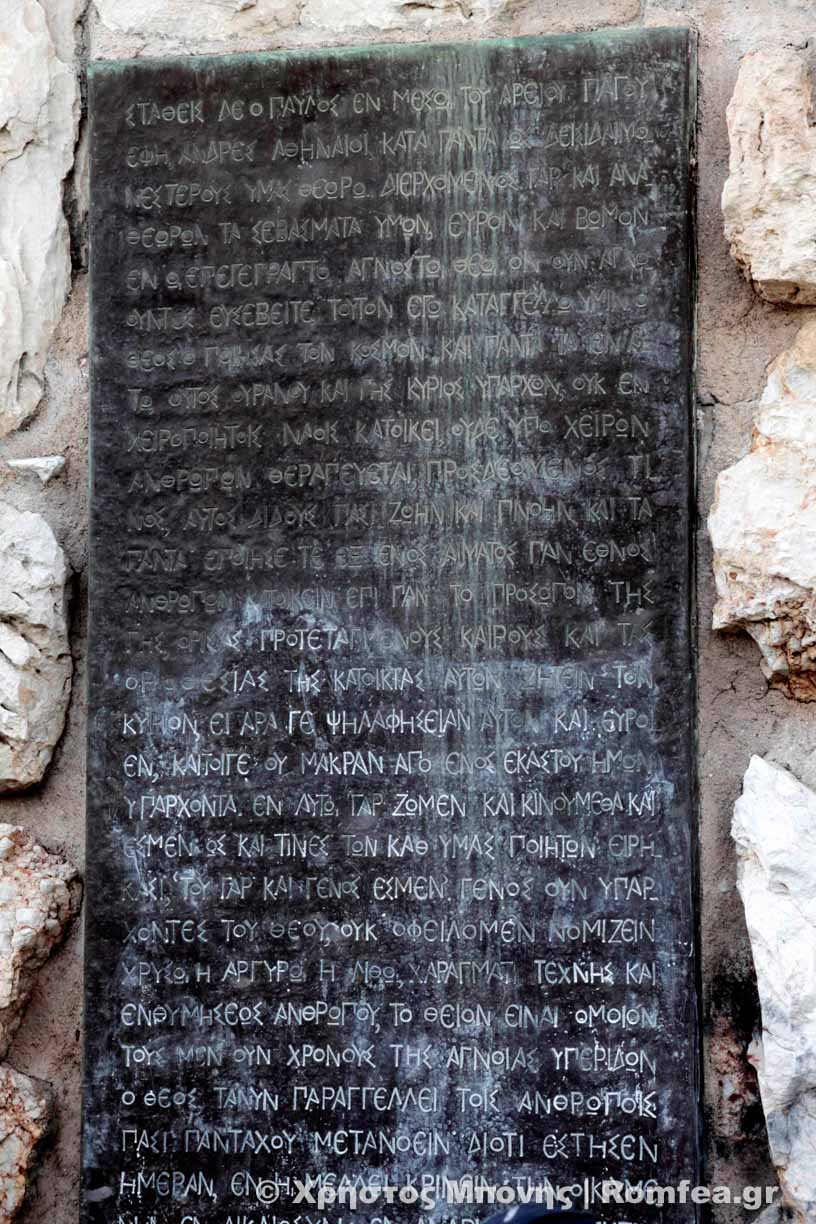 ΣΤΑΘΕΙΣ ΔΕ Ο ΠΑΥΛΟΣ ΕΝ ΜΕΣΩ ΤΟΥ ΑΡΕΙΟΥ ΠΑΓΟΥ
ΕΦΗ, ΑΝΔΡΕΣ ΑΘΗΝΑΙΟΙ, ΚΑΤΑ ΠΑΝΤΑ ΩΣ ΔΕΙΣΙΔΑΙΜΟ
ΝΕΣΤΕΡΟΥΣ ΥΜΑΣ ΘΕΩΡΩ. ΔΙΕΡΧΟΜΕΝΟΣ ΓΑΡ ΚΑΙ ΑΝΑ
ΘΕΩΡΩΝ ΤΑ ΣΕΒΑΣΜΑΤΑ ΥΜΩΝ, ΕΥΡΟΝ ΚΑΙ ΒΩΜΟΝ
ΕΝ Ω ΕΠΕΓΕΓΡΑΠΤΟ, ΑΓΝΩΣΤΩ ΘΕΩ. ΟΝ ΟΥΝ ΑΓΝΟ
ΟΥΝΤΕΣ ΕΥΣΕΒΕΙΤΕ ΤΟΥΤΟΝ ΕΓΩ ΚΑΤΑΓΓΕΛΛΩ ΥΜΙΝ. Ο
ΘΕΟΣ Ο ΠΟΙΗΣΑΣ ΤΟΝ ΚΟΣΜΟΝ ΚΑΙ ΠΑΝΤΑ ΤΑ ΕΝ ΑΥ
ΤΩ ΟΥΤΟΣ ΟΥΡΑΝΟΥ ΚΑΙ ΓΗΣ ΚΥΡΙΟΣ ΥΠΑΡΧΩΝ, ΟΥΚ ΕΝ
ΧΕΙΡΟΠΟΙΗΤΟΙΣ ΝΑΟΙΣ ΚΑΤΟΙΚΕΙ, ΟΥΔΕ ΥΠΟ ΧΕΙΡΩΝ
ΑΝΘΡΩΠΩΝ ΘΕΡΑΠΕΥΕΤΑΙ ΠΡΟΣΔΕΟΜΕΝΟΣ ΤΙ
ΝΟΣ, ΑΥΤΟΣ ΔΙΔΟΥΣ ΠΑΣΙ ΖΩΗΝ ΚΑΙ ΠΝΟΗΝ ΚΑΙ ΤΑ
ΠΑΝΤΑ ΕΠΟΙΗΣΕ ΤΕ ΕΞ ΕΝΟΣ ΑΙΜΑΤΟΣ ΠΑΝ ΕΘΝΟΣ
ΑΝΘΡΩΠΩΝ ΚΑΤΟΙΚΕΙΝ ΕΠΙ ΠΑΝ ΤΟ ΠΡΟΣΩΠΟΝ ΤΗΣ
ΓΗΣ, ΟΡΙΣΑΣ ΠΡΟΤΕΤΑΓΜΕΝΟΥΣ ΚΑΙΡΟΥΣ ΚΑΙ ΤΑΣ
ΟΡΟΘΕΣΙΑΣ ΤΗΣ ΚΑΤΟΙΚΙΑΣ ΑΥΤΩΝ ΖΗΤΕΙΝ ΤΟΝ
ΚΥΡΙΟΝ, ΕΙ ΑΡΑ ΓΕ ΨΗΛΑΦΗΣΕΙΑΝ ΑΥΤΟΝ ΚΑΙ ΕΥΡΟΙ
ΕΝ, ΚΑΙΤΟΙΓΕ ΟΥ ΜΑΚΡΑΝ ΑΠΟ ΕΝΟΣ ΕΚΑΣΤΟΥ ΗΜΩΝ
ΥΠΑΡΧΟΝΤΑ. ΕΝ ΑΥΤΩ ΓΑΡ ΖΩΜΕΝ ΚΑΙ ΚΙΝΟΥΜΕΘΑ ΚΑΙ
ΕΣΜΕΝ ΩΣ ΚΑΙ ΤΙΝΕΣ ΤΩΝ ΚΑΘ ΥΜΑΣ ΠΟΙΗΤΩΝ ΕΙΡΗ
ΚΑΣΙ, ΤΟΥ ΓΑΡ ΚΑΙ ΓΕΝΟΣ ΕΣΜΕΝ. ΓΕΝΟΣ ΟΥΝ ΥΠΑΡ
ΧΟΝΤΕΣ ΤΟΥ ΘΕΟΥ, ΟΥΚ ΟΦΕΙΛΟΜΕΝ ΝΟΜΙΖΕΙΝ
ΧΡΥΣΩ, Η ΑΡΓΥΡΩ, Η ΛΙΘΩ, ΧΑΡΑΓΜΑΤΙ ΤΕΧΝΗΣ ΚΑΙ
ΕΝΘΥΜΗΣΕΩΣ ΑΝΘΡΩΠΟΥ, ΤΟ ΘΕΙΟΝ ΕΙΝΑΙ ΟΜΟΙΟΝ
ΤΟΥΣ ΜΕΝ ΟΥΝ ΧΡΟΝΟΥΣ ΤΗΣ ΑΓΝΟΙΑΣ ΥΠΕΡΙΔΩΝ
Ο ΘΕΟΣ ΤΑΝΥΝ ΠΑΡΑΓΓΕΛΛΕΙ ΤΟΙΣ ΑΝΘΡΩΠΟΙΣ
ΠΑΣΙ ΠΑΝΤΑΧΟΥ ΜΕΤΑΝΟΕΙΝ ΔΙΟΤΙ ΕΣΤΗΣΕΝ
ΗΜΕΡΑΝ, ΕΝ Η ΜΕΛΛΕΙ ΚΡΙΝΕΙΝ ΤΗΝ ΟΙΚΟΥΜΕ
© Χρήστος Μπόνης | Romfea.gr